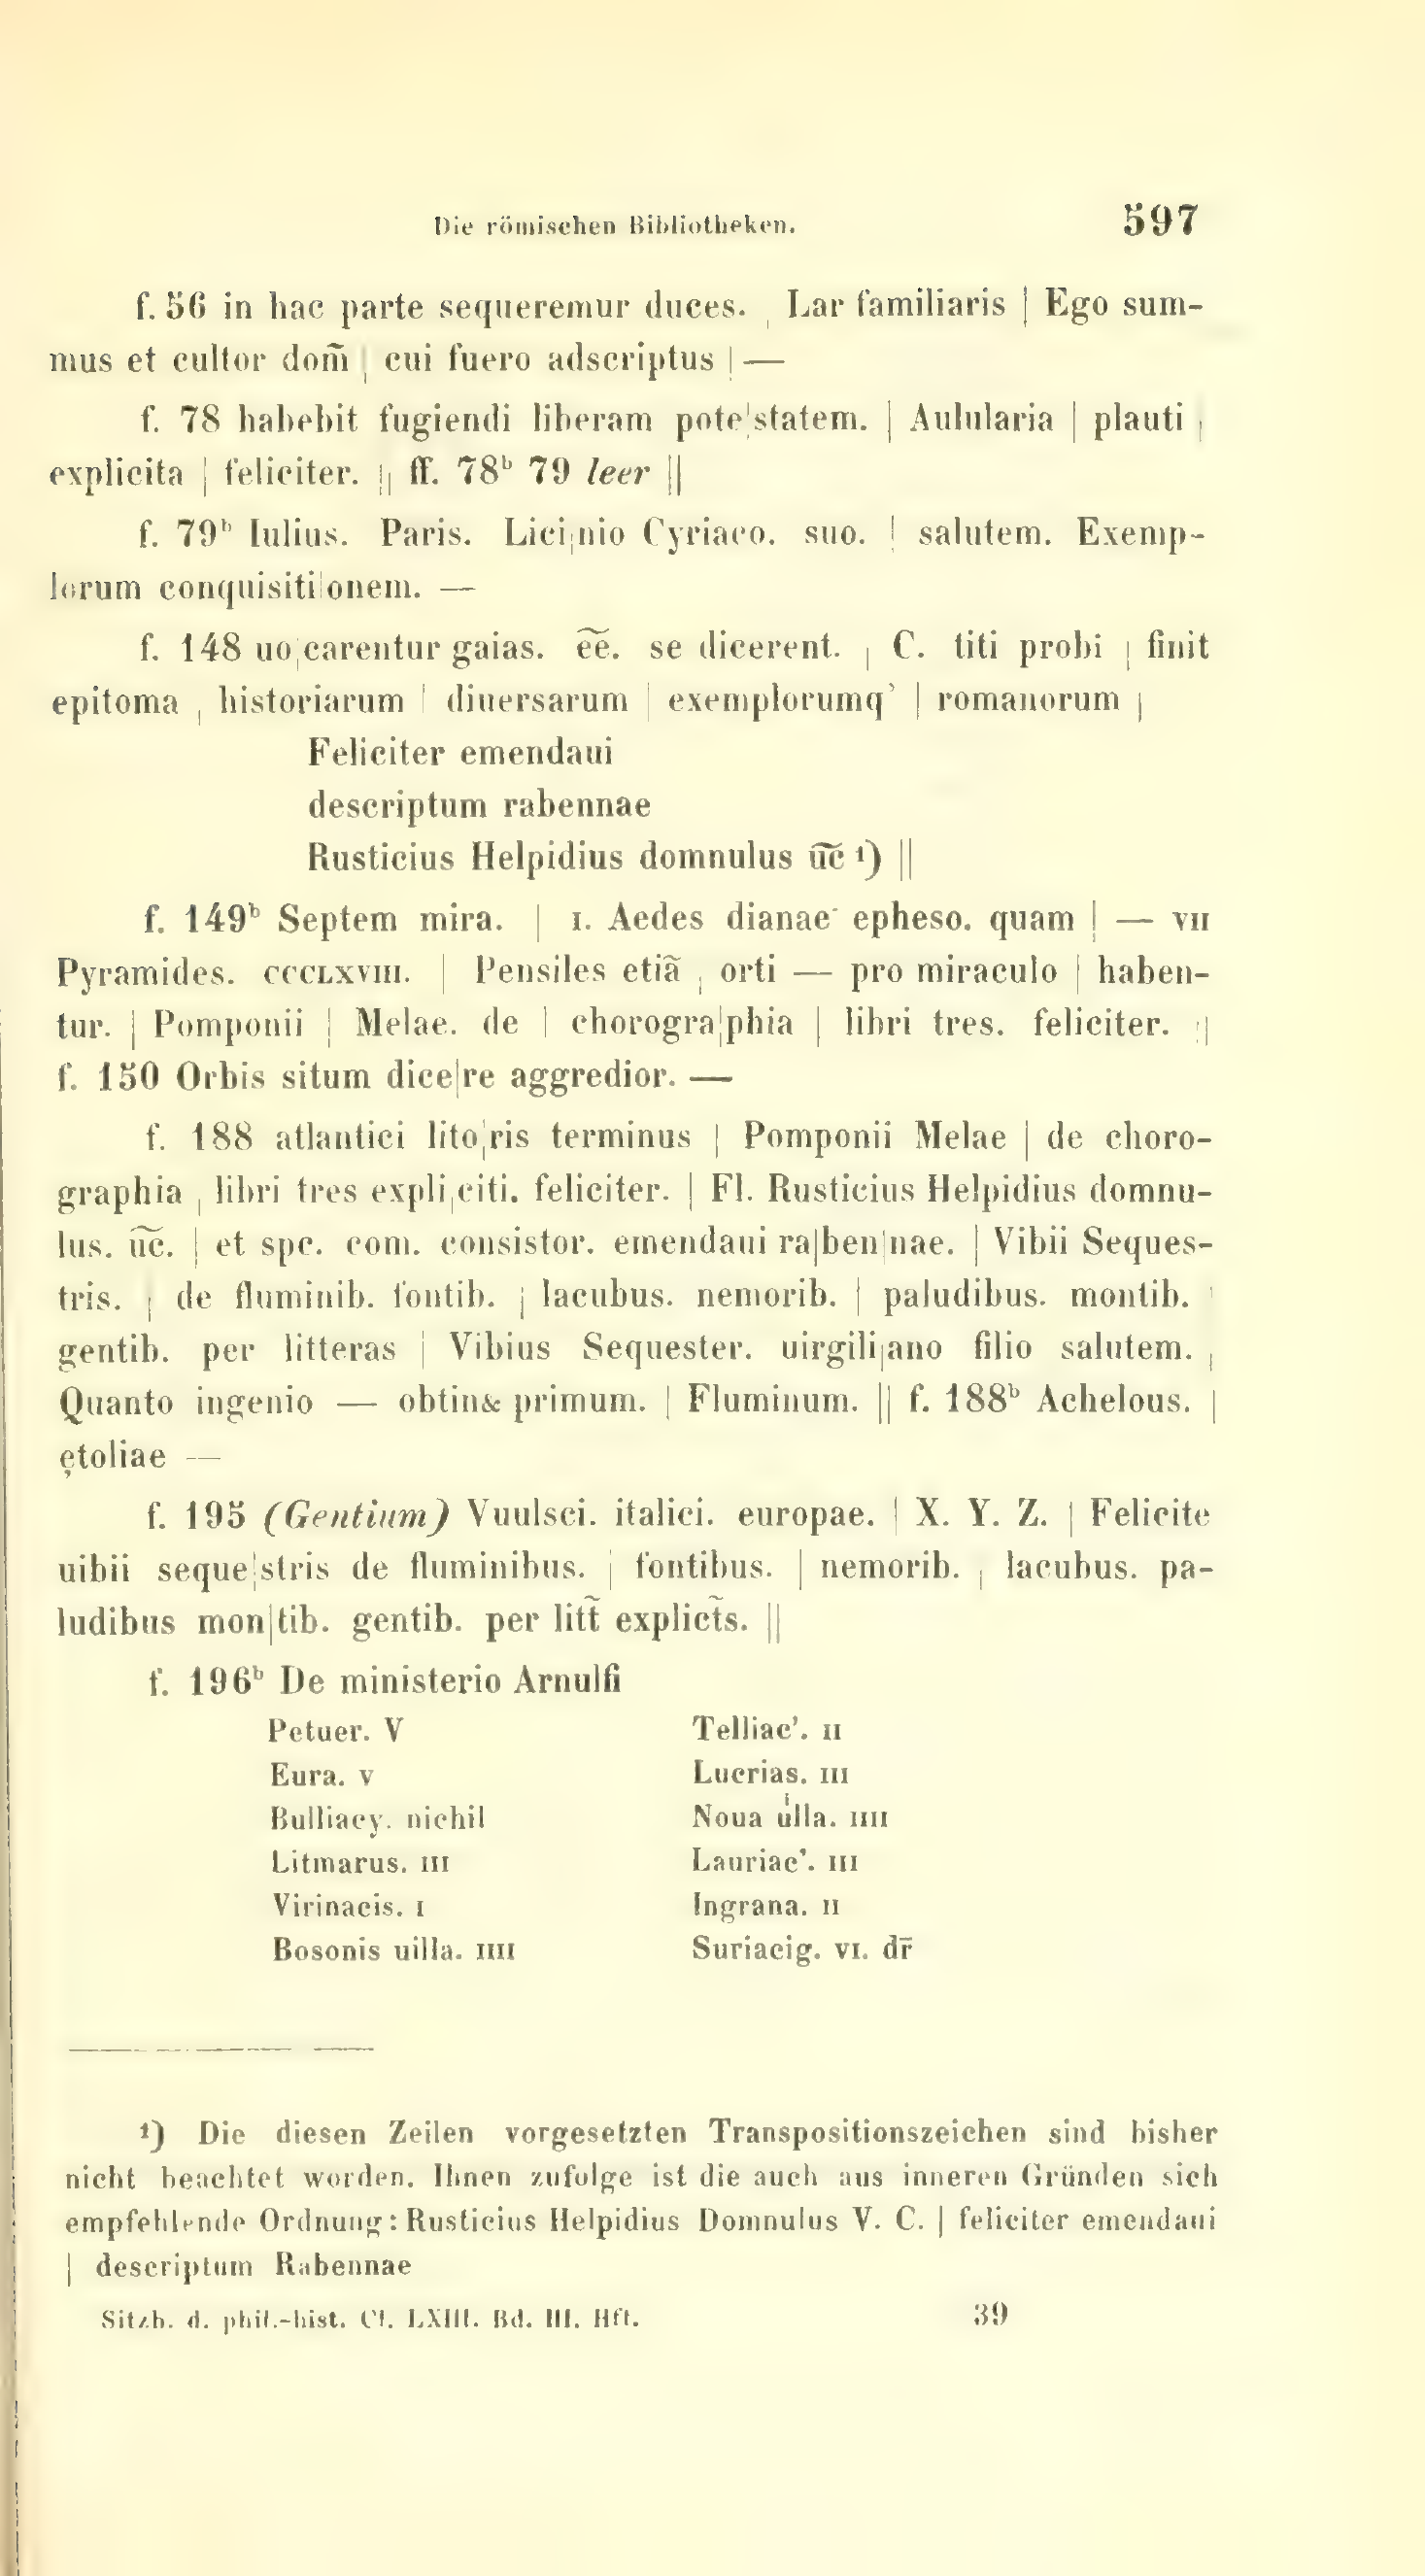 Die römischen Bibliotheken. 597
f. 56 in hac parte sequeremur duces. | Lar familiaris | Ego sum-
mus et cultor dom̃ | cui fuero adscriptus | —
f. 78 habebit fugiendi liberam pote|statem. | Aulularia | plauti |
explicita | feliciter. || ff. 78ᵇ 79 leer ||
f. 79ᵇ Iulius. Paris. Lici|nio Cyriaco. suo. | salutem. Exemp-
lorum conquisiti|onem. —
f. 148 uo|carentur gaias. e͠e. se dicerent. | C. titi probi | finit
epitoma | historiarum | diuersarum | exemplorumq’ | romanorum |
Feliciter emendaui
descriptum rabennae
Rusticius Helpidius domnulus u͠c ¹) ||
f. 149ᵇ Septem mira. | I. Aedes dianae epheso. quam | — VII
Pyramides. CCCLXVIII. | Pensiles etiã | orti — pro miraculo | haben-
tur. | Pomponii | Melae. de | chorogra|phia | libri tres. feliciter. ||
f. 150 Orbis situm dice|re aggredior. —
f. 188 atlantici lito|ris terminus | Pomponii Melae | de choro-
graphia | libri tres expli|citi. feliciter. | Fl. Rusticius Helpidius domnu-
lus. u͠c. | et spc. com. consistor. emendaui ra|ben|nae. | Vibii Seques-
tris. | de fluminib. fontib. | lacubus. nemorib. | paludibus. montib. |
gentib. per litteras | Vibius Sequester. uirgili|ano filio salutem. |
Quanto ingenio — obtin& primum. | Fluminum. || f. 188ᵇ Achelous. |
ętoliae —
f. 195 (Gentium) Vuulsci. italici. europae. | X. Y. Z. | Felicite
uibii seque|stris de fluminibus. | fontibus. | nemorib. | lacubus. pa-
ludibus mon|tib. gentib. per litt̃ explict̃s. ||
f. 196ᵇ De ministerio Arnulfi
Petuer. V Telliac’. II
Eura. V Lucrias. III
Bulliacy. nichil Noua uͥlla. IIII
Litmarus. III Lauriac’. III
Virinacis. I Ingrana. II
Bosonis uilla. IIII Suriacig. VI. dr̄
¹) Die diesen Zeilen vorgesetzten Transpositionszeichen sind bisher
nicht beachtet worden. Ihnen zufolge ist die auch aus inneren Gründen sich
empfehlende Ordnung: Rusticius Helpidius Domnulus V. C. | feliciter emendaui
| descriptum Rabennae
Sitzb. d. phil.-hist. Cl. LXIII. Bd. III. Hft. 39